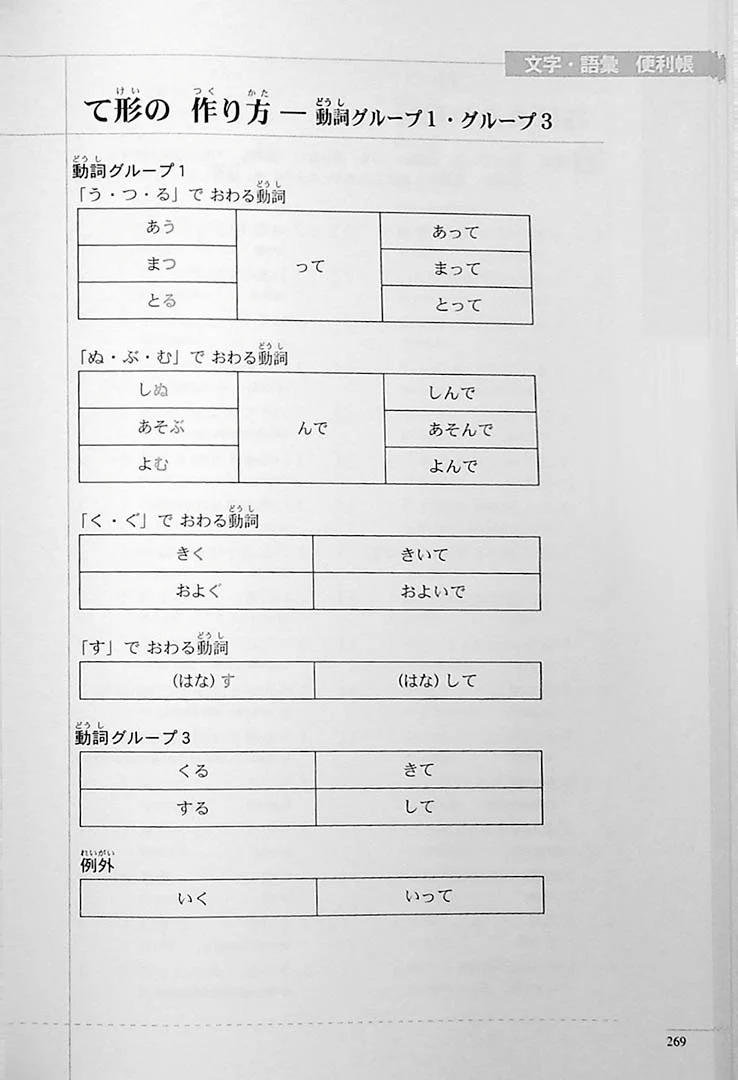 文字・語彙 便利帳
て形の 作り方 ― 動詞グループ1・グループ3
けい つく かた どうし
動詞グループ1
どうし
「う・つ・る」で おわる動詞
どうし
あう って あって
まつ まって
とる とって
「ぬ・ぶ・む」で おわる動詞
どうし
しぬ んで しんで
あそぶ あそんで
よむ よんで
「く・ぐ」で おわる動詞
どうし
きく きいて
およぐ およいで
「す」で おわる動詞
どうし
(はな)す (はな)して
動詞グループ3
どうし
くる きて
する して
例外
れいがい
いく いって
269